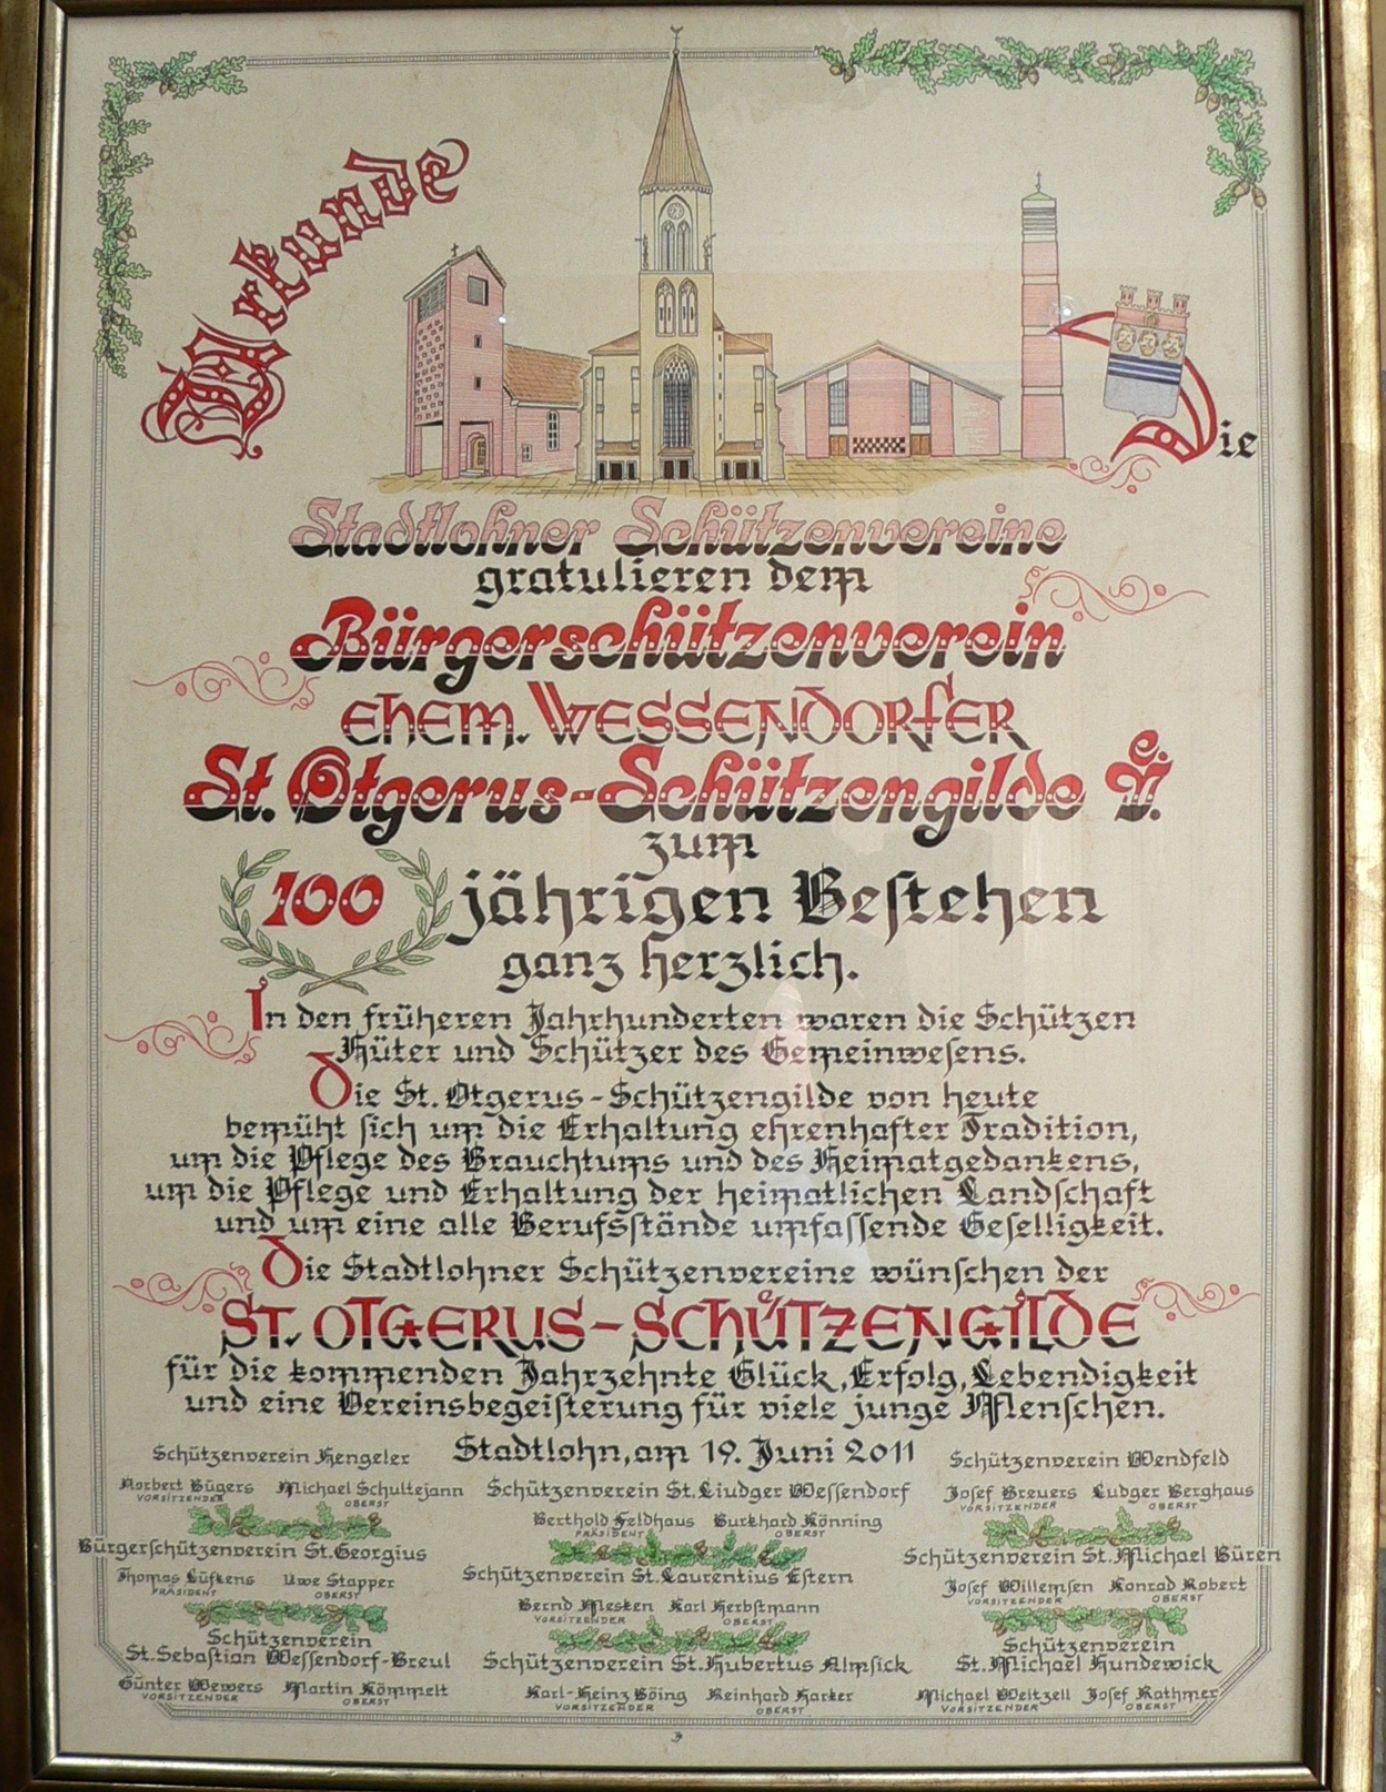 Urkunde
Die
Stadtlohner Schützenvereine
gratulieren dem
Bürgerschützenverein
EHEM. WESSENDORFER
St. Otgerus-Schützengilde e.V.
zum
100 jährigen Bestehen
ganz herzlich.
In den früheren Jahrhunderten waren die Schützen
Hüter und Schützer des Gemeinwesens.
Die St. Otgerus-Schützengilde von heute
bemüht sich um die Erhaltung ehrenhafter Tradition,
um die Pflege des Brauchtums und des Heimatgedankens,
um die Pflege und Erhaltung der heimatlichen Landschaft
und um eine alle Berufsstände umfassende Geselligkeit.
Die Stadtlohner Schützenvereine wünschen der
ST. OTGERUS-SCHÜTZENGILDE
für die kommenden Jahrzehnte Glück, Erfolg, Lebendigkeit
und eine Vereinsbegeisterung für viele junge Menschen.
Stadtlohn, am 19. Juni 2011
Schützenverein Hengeler
Norbert Bügers Michael Schultejann
VORSITZENDER OBERST
Bürgerschützenverein St. Georgius
Thomas Lüfkens Uwe Stapper
PRÄSIDENT OBERST
Schützenverein
St. Sebastian Wessendorf-Breul
Günter Wewers Martin Kömmelt
VORSITZENDER OBERST
Schützenverein St. Liudger Wessendorf
Berthold Feldhaus Burkhard Könning
PRÄSIDENT OBERST
Schützenverein St. Laurentius Estern
Bernd Mesken Karl Herbstmann
VORSITZENDER OBERST
Schützenverein St. Hubertus Almsick
Karl-Heinz Böing Reinhard Harker
VORSITZENDER OBERST
Schützenverein Wendfeld
Josef Breuers Ludger Berghaus
VORSITZENDER OBERST
Schützenverein St. Michael Büren
Josef Willemsen Konrad Robert
VORSITZENDER OBERST
Schützenverein
St. Michael Hundewick
Michael Weitzell Josef Rathmer
VORSITZENDER OBERST